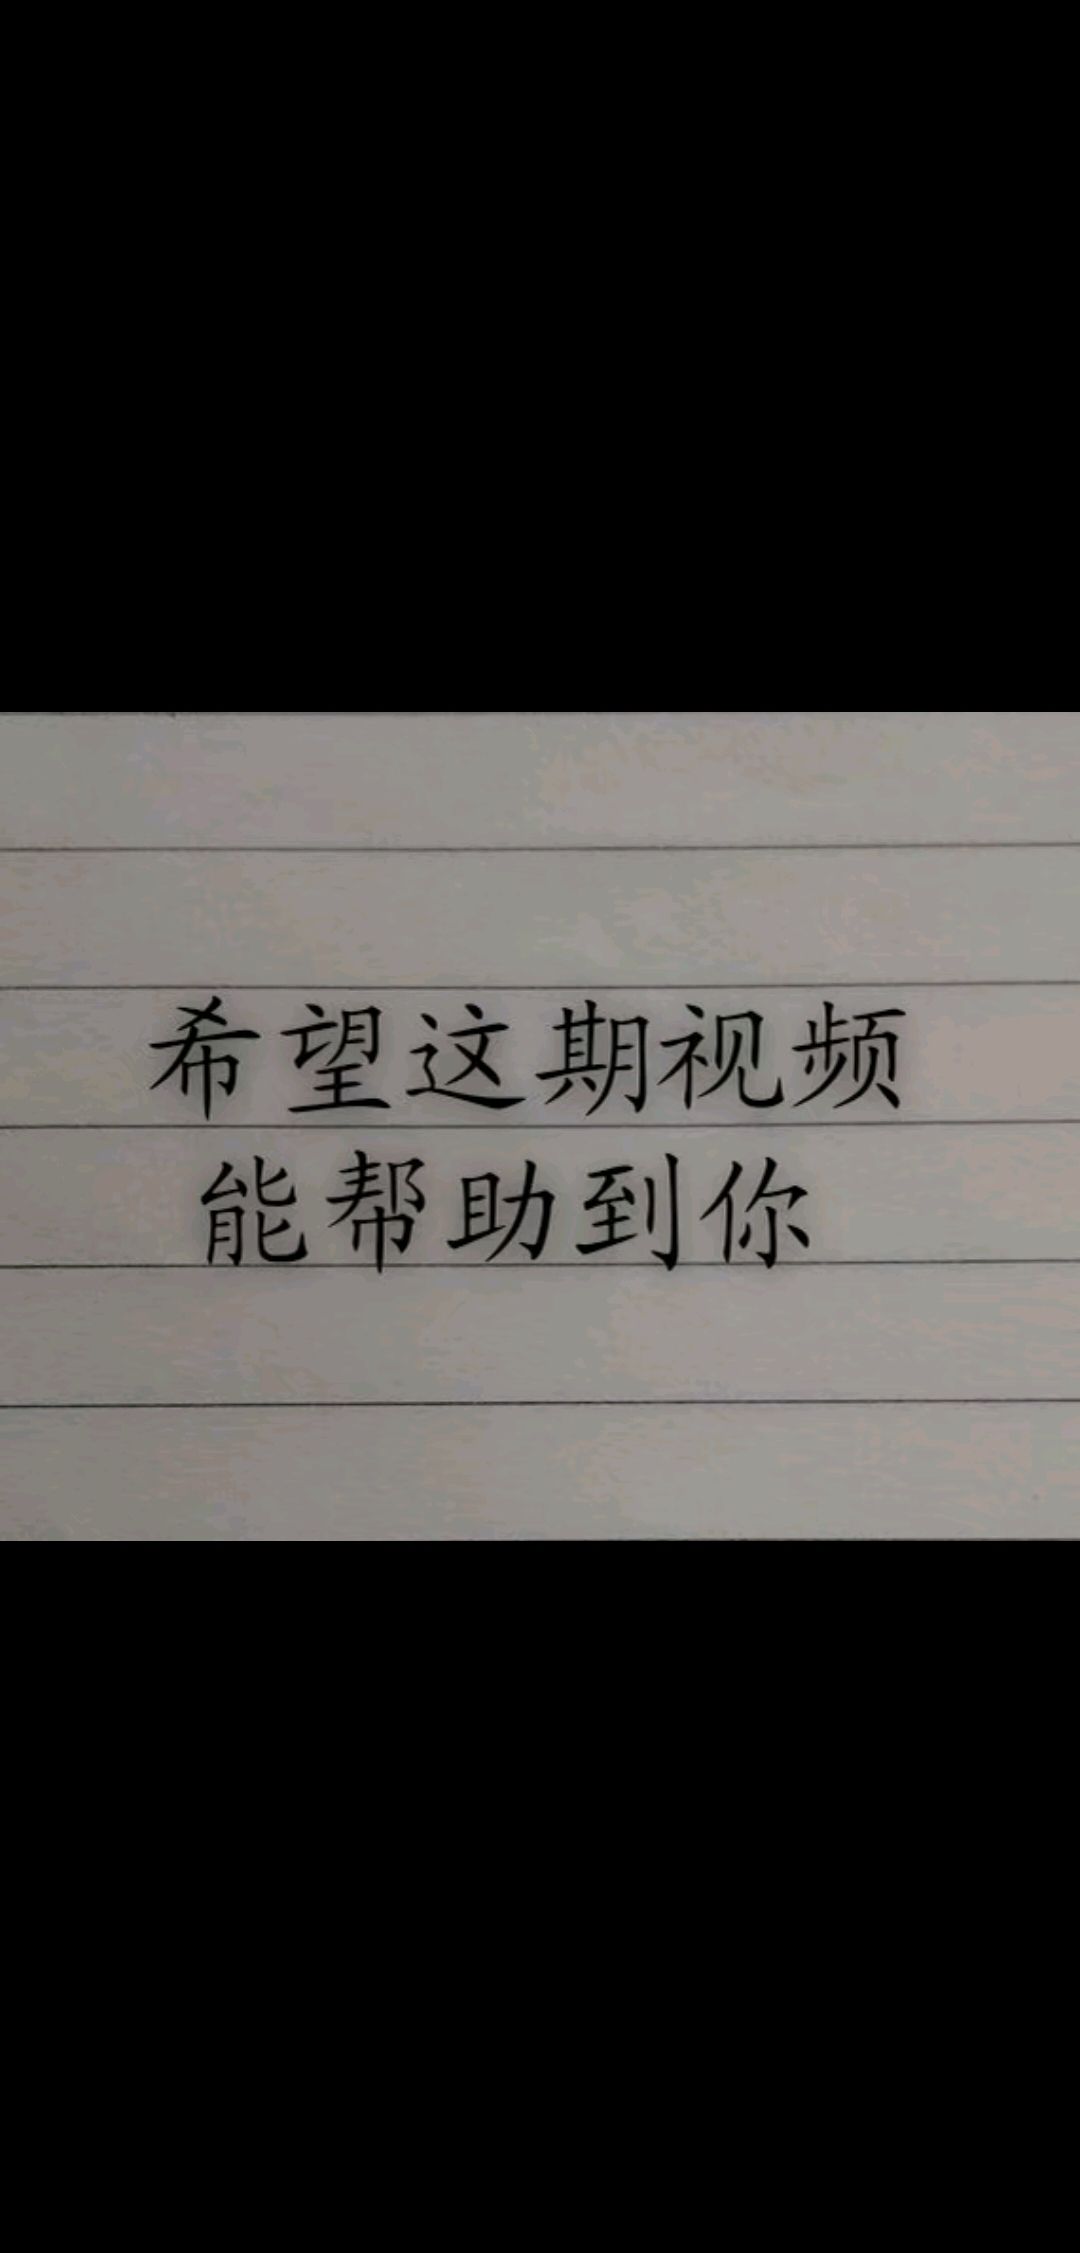 希望这期视频
能帮助到你